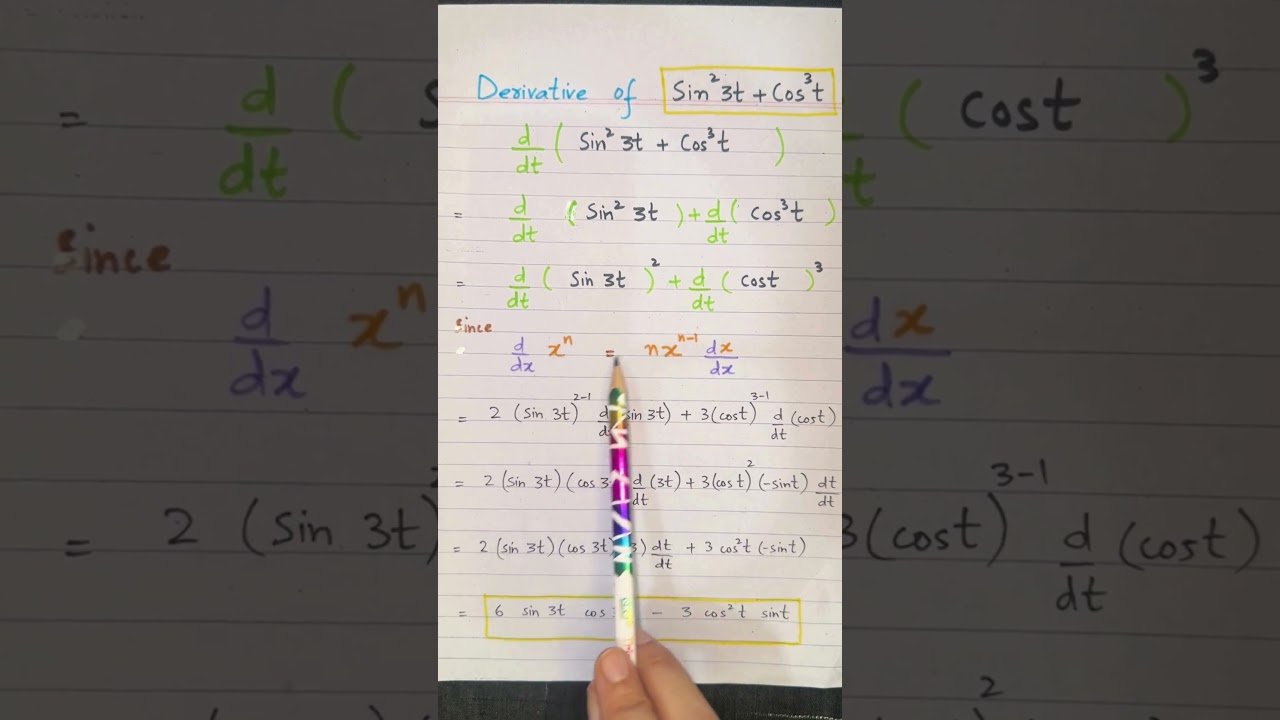 Derivative of Sin²3t + Cos³t
d/dt ( Sin² 3t + Cos³t )
= d/dt ( Sin² 3t ) + d/dt ( Cos³t )
= d/dt ( Sin 3t )² + d/dt ( Cost )³
Since
d/dx xⁿ = nxⁿ⁻¹ dx/dx
= 2 (Sin 3t)²⁻¹ (sin 3t) + 3(cost)³⁻¹ d/dt (cost)
= 2 (sin 3t) (cos 3 d/dt (3t) + 3(cost)² (-sint) dt/dt
= 2 (sin 3t) (cos 3t ) dt/dt + 3 cos²t (-sint)
= 6 sin 3t cos - 3 cos²t sint